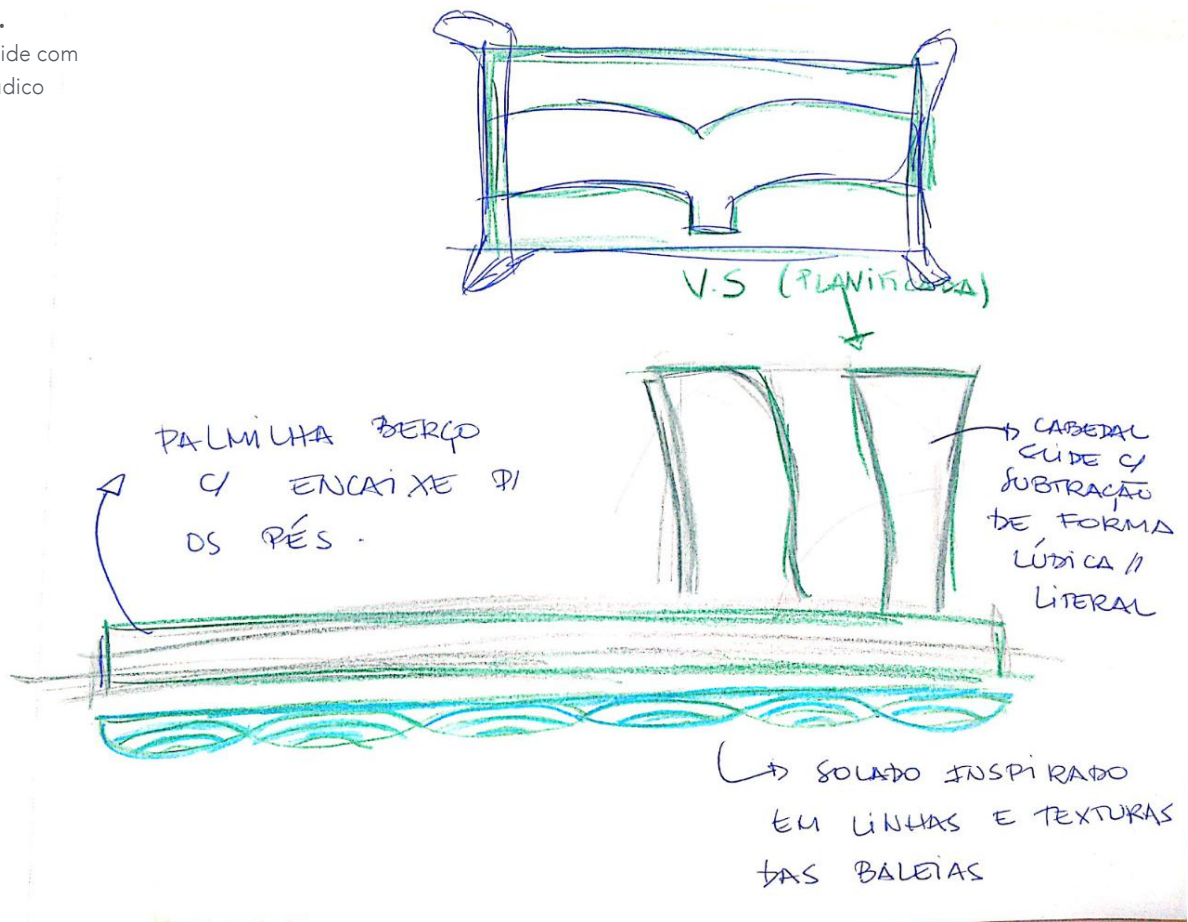 ide com
dico
V.S (PLANIFICADA)
PALMILHA BERÇO
C/ ENCAIXE P/
OS PÉS.
CABEDAL
SLIDE C/
SUBTRAÇÃO
DE FORMA
LÚDICA //
LITERAL
SOLADO INSPIRADO
EM LINHAS E TEXTURAS
DAS BALEIAS